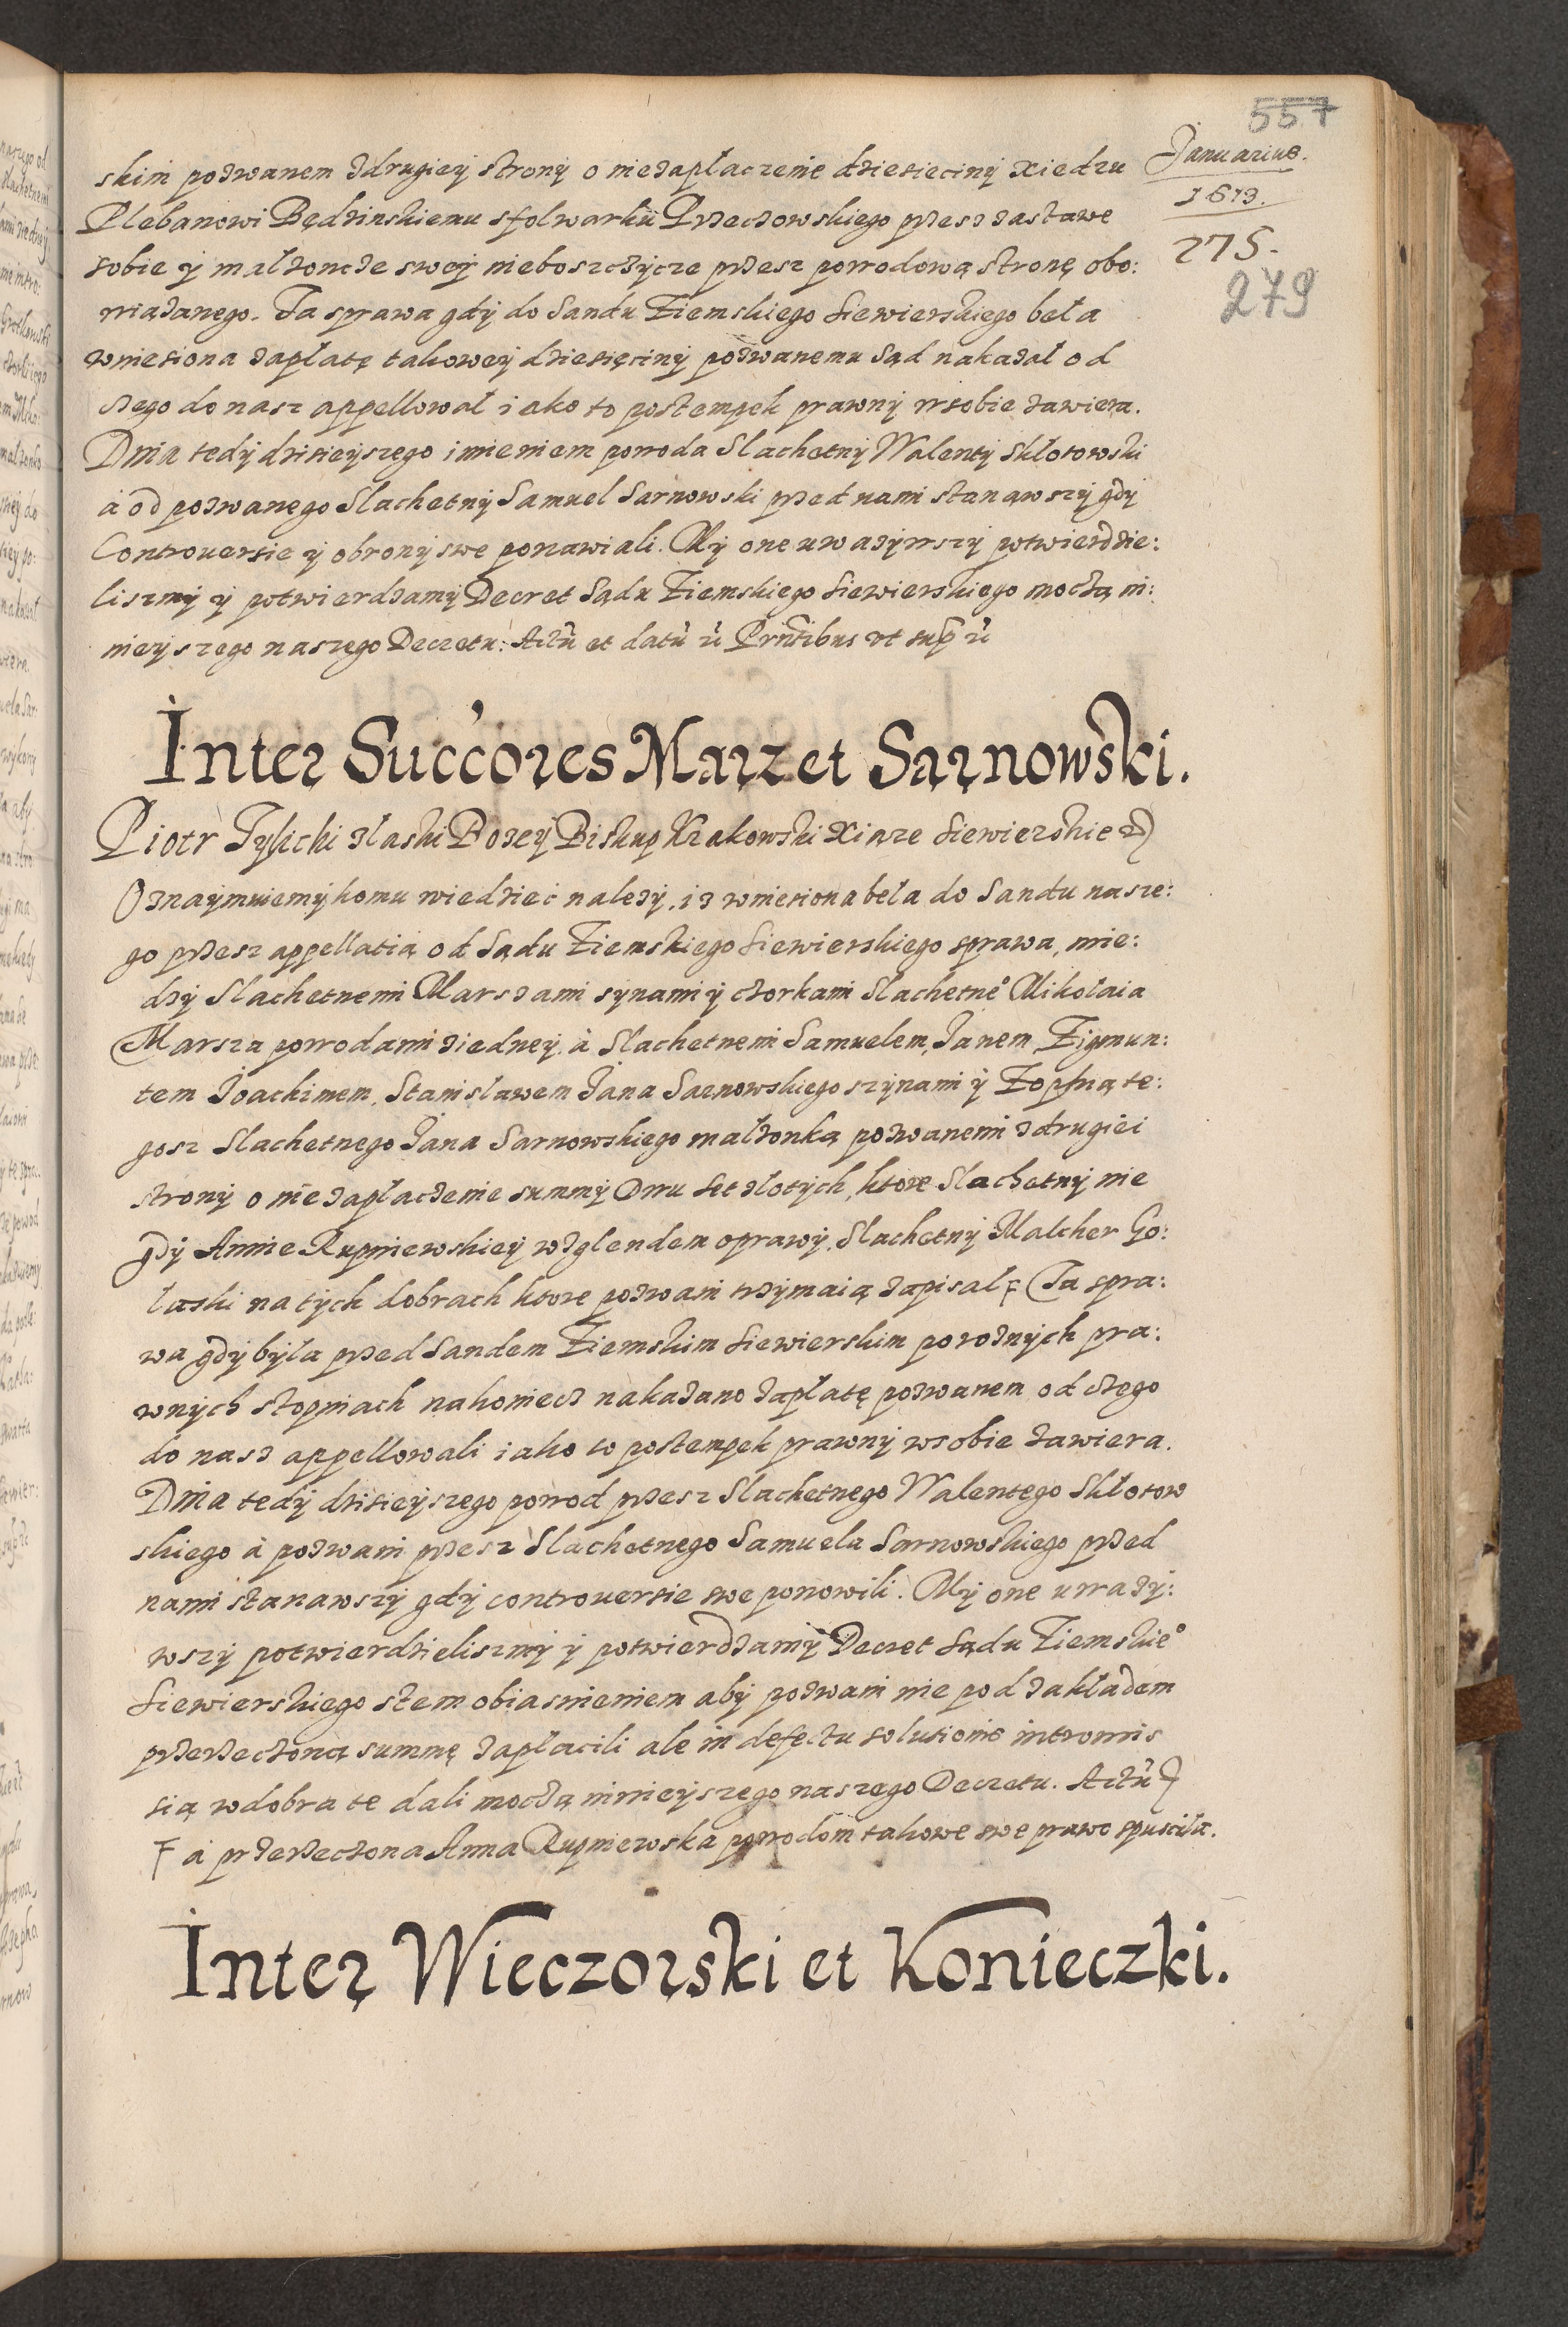 557
Januarius.
1613.
275.
279
skim pozwanem zdrugiey strony o niezaplaczenie dziesieciny Xiedzu
Plebanowi Będzinskiemu sfolwarku Przeczowskiego przesz zastawe
sobie y malzoncze swey nieboszczycze przesz powodową stronę obo:
wiązanego. Ta sprawa gdy do Sandu Ziemskiego Siewierskiego beła
wniesiona zapłatę takowey dziesięciny pozwanemu Sąd nakazał od
czego do nasz appellował iako to postempek prawny wsobie zawiera.
Dnia tedy dzisieyszego imieniem powoda Slachetny Walenty Skłotowski
à od pozwanego Slachetny Samuel Sarnowski przed nami stanąwszy gdy
Controuersie y obrony swe ponawiali. My one uwazywszy potwierdzie:
liszmy y potwierdzamy Decret Sądu Ziemskiego Siewierskiego moczą ni:
nieyszego naszego Decretu: Actũ et datũ ũ Prñtibus vt supũ
Inter Succ'ores Marz et Sarnowski.
Piotr Tylicki zlaski Bozey Biskup Krakowski Xiąze Siewierskie
Oznaymuiemy komu wiedzieć nalezy, iz wniesiona beła do Sandu nasze:
go przesz appellatią od Sądu Ziemskiego Siewierskiego sprawa, mie:
dzy Slachetnemi Marszami synami y czorkami Slachetne° Mikołaia
Marsza powodami ziedney, à Slachetnemi Samuelem, Janem, Zigmun:
tem Joachimem, Stanisławem Jana Sarnowskiego szynami y Zophią te:
gosz Slachetnego Jana Sarnowskiego malzonką pozwanemi zdrugiei
strony o niezaplaczenie summy Dwu set złotych, ktore Slachetny nie
gdy Annie Rupniewskiey wzglendem oprawy, Slachetny Malcher Go:
laski na tych dobrach ktore pozwani trzymaią zapisał Ŧ Ta spra:
wa gdy była przed Sandem Ziemskim Siewierskim porożnych pra:
wnych stopniach nakoniecz nakazano zapłatę pozwanem od czego
do nasz appellowali iako to postempek prawny wsobie zawiera.
Dnia tedy dzisieyszego powod przesz Slachetnego Walentego Skłotow
skiego à pozwani przesz Slachetnego Samuela Sarnowskiego przed
nami stanawszy gdy controuersie swe ponowili. My one uwazy:
wszy potwierdzieliszmy y potwierdzamy Decret Sądu Ziemskie°
Siewierskiego stem obiasnieniem aby pozwani nie pod zakładem
przerzeczoną summę zapłacili ale in defectu solutionis intromis
sią wdobra te dali moczą ninieyszego naszego Decretu. Actũ
Ŧ a przerzeczona Anna Rupniewska powodom takowe swe prawo spusciła.
Inter Wieczorski et Konieczki.